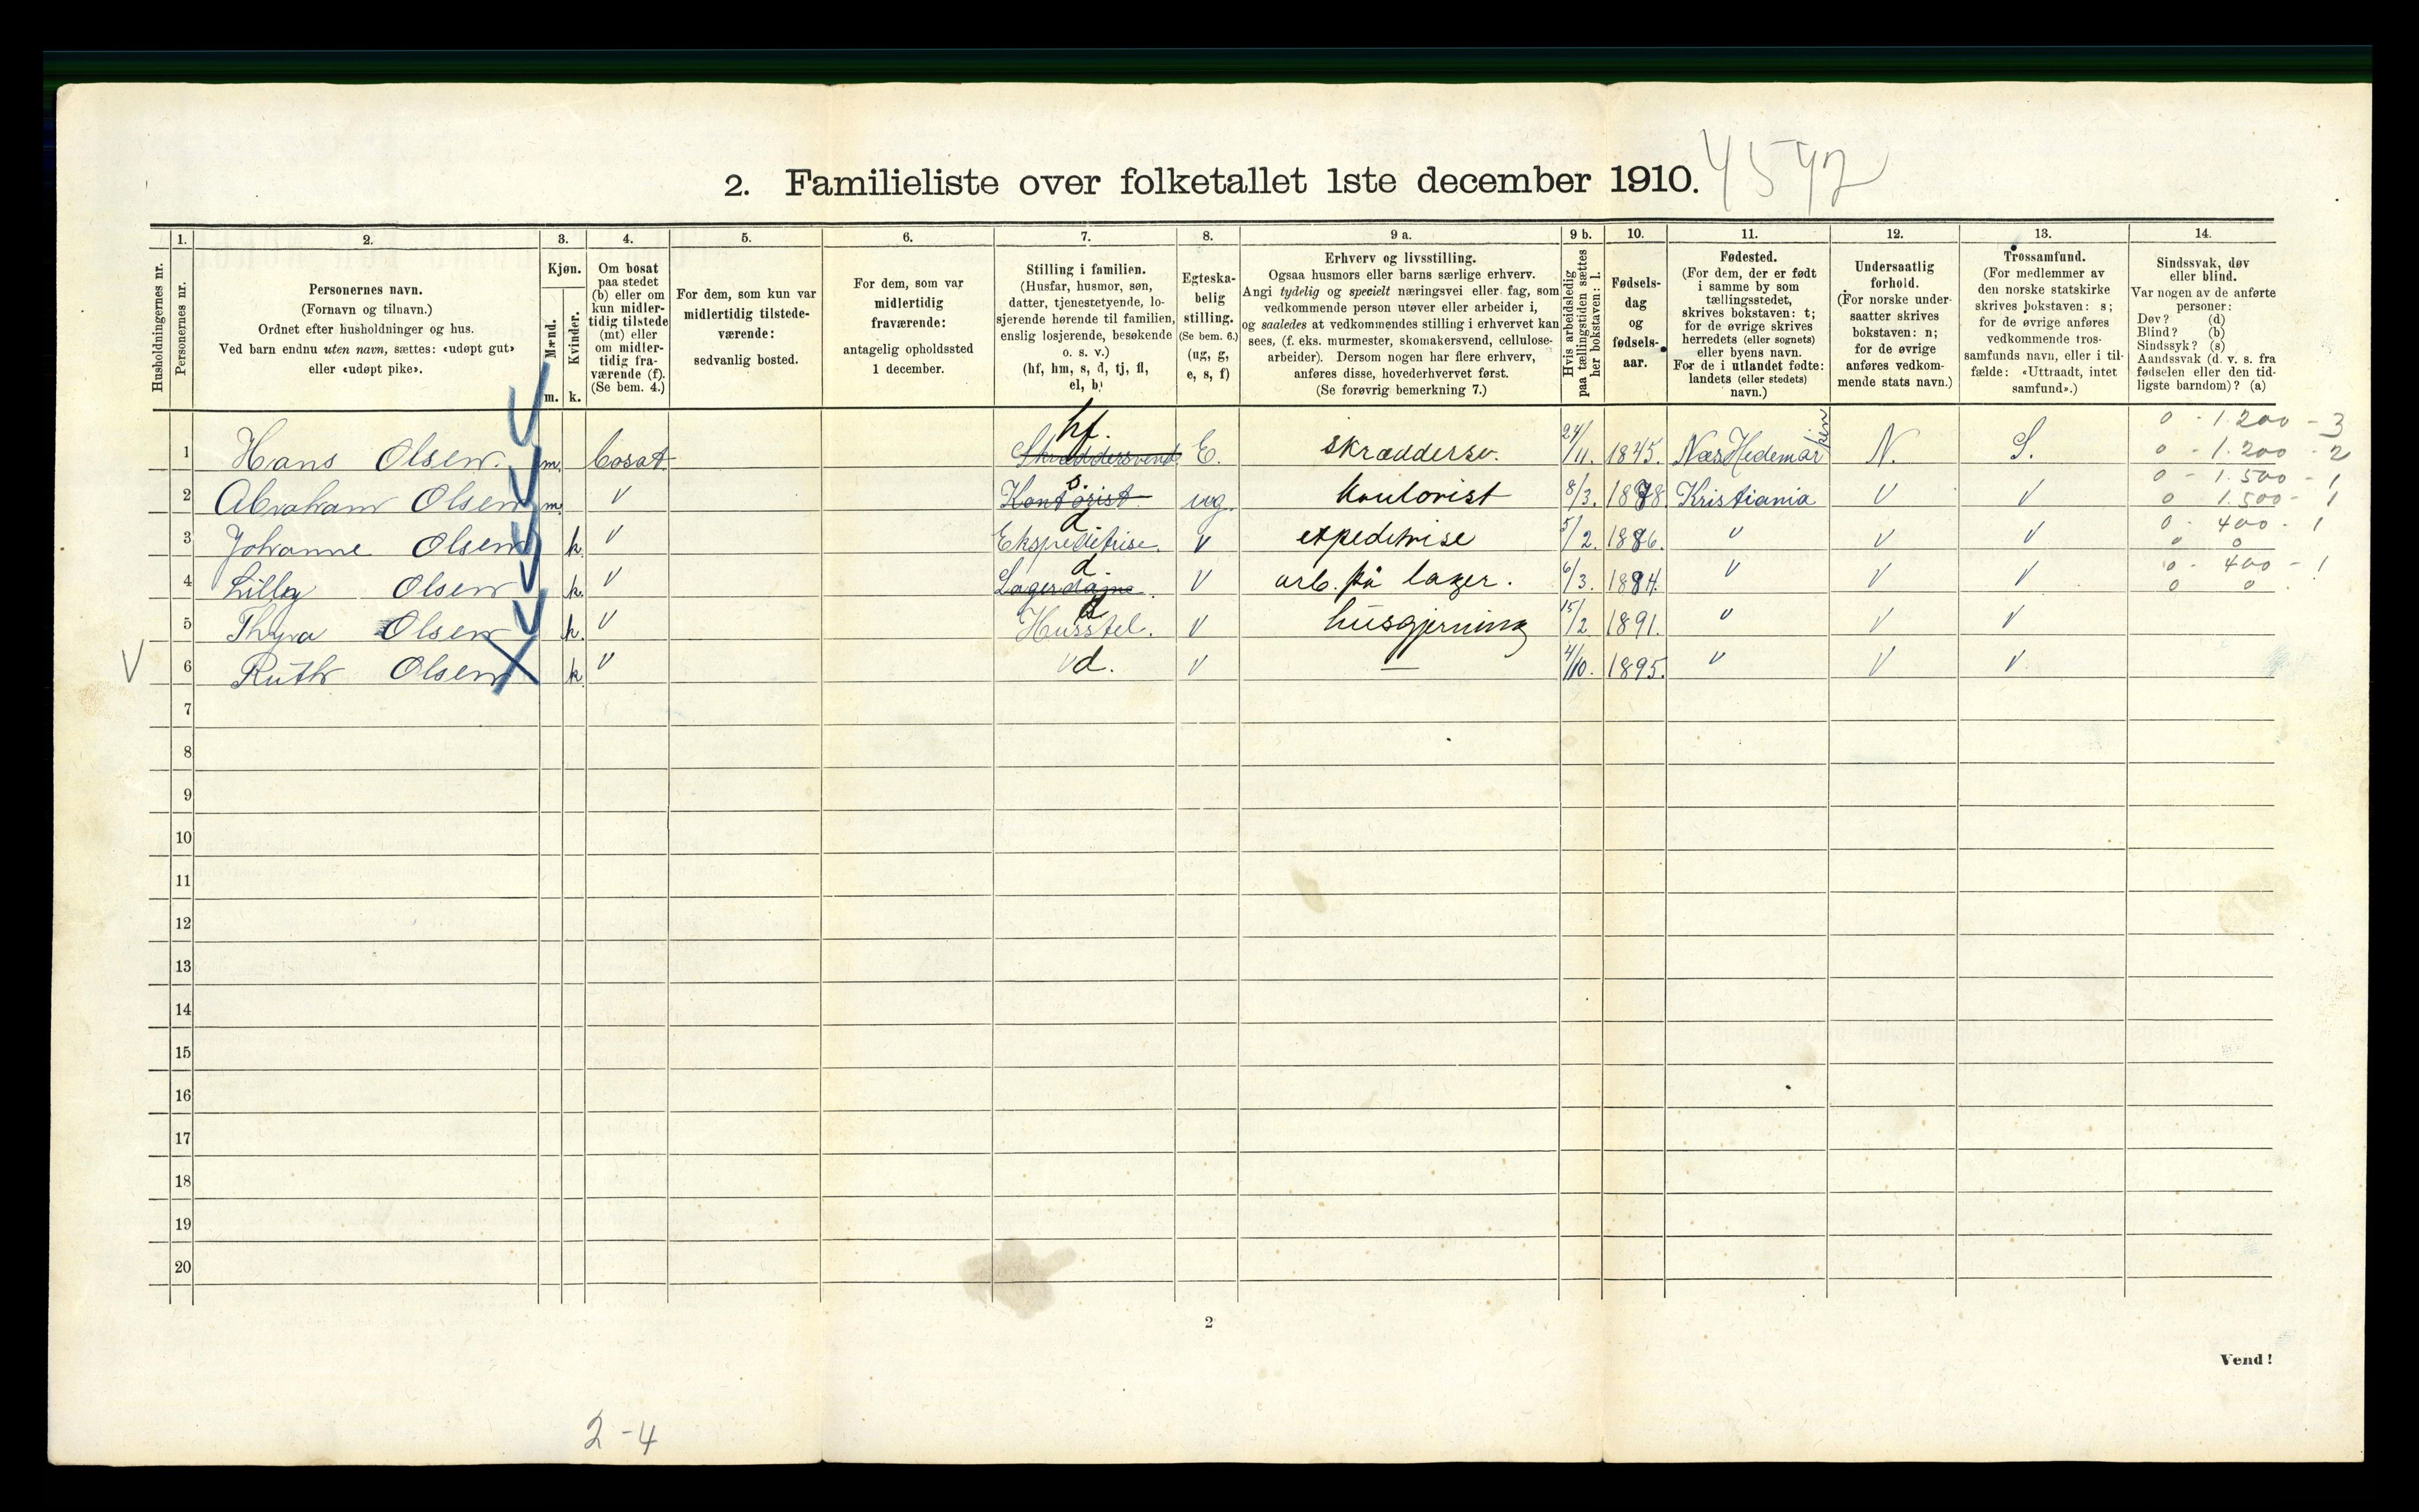 4542
2. Familieliste over folketallet 1ste december 1910.
Husholdningernes nr.
1.
Personernes nr.
2.
Personernes navn.
(Fornavn og tilnavn.)
Ordnet efter husholdninger og hus.
Ved barn endnu uten navn, sættes: «udøpt gut»
eller «udøpt pike».
3.
Kjøn.
Mænd.
Kvinder.
m. k.
4.
Om bosat
paa stedet
(b) eller om
kun midler-
tidig tilstede
(mt) eller
om midler-
tidig fra-
værende (f).
(Se bem. 4.)
5.
For dem, som kun var
midlertidig tilstede-
værende:
sedvanlig bosted.
6.
For dem, som var
midlertidig
fraværende:
antagelig opholdssted
1 december.
7.
Stilling i familien.
(Husfar, husmor, søn,
datter, tjenestetyende, lo-
sjerende hørende til familien,
enslig losjerende, besøkende
o. s. v.)
(hf, hm, s, d, tj, fl,
el, b)
8.
Egteska-
belig
stilling.
(Se bem. 6.)
(ug, g,
e, s, f)
9 a.
Erhverv og livsstilling.
Ogsaa husmors eller barns særlige erhverv.
Angi tydelig og specielt næringsvei eller fag, som
vedkommende person utøver eller arbeider i,
og saaledes at vedkommendes stilling i erhvervet kan
sees, (f. eks. murmester, skomakersvend, cellulose-
arbeider). Dersom nogen har flere erhverv,
anføres disse, hovederhvervet først.
(Se forøvrig bemerkning 7.)
9 b.
Hvis arbeidsledig
paa tællingstiden sættes
her bokstaven: l.
10.
Fødsels-
dag
og
fødsels-
aar.
11.
Fødested.
(For dem, der er født
i samme by som
tællingsstedet,
skrives bokstaven: t;
for de øvrige skrives
herredets (eller sognets)
eller byens navn.
For de i utlandet fødte:
landets (eller stedets)
navn.)
12.
Undersaatlig
forhold.
(For norske under-
saatter skrives
bokstaven: n;
for de øvrige
anføres vedkom-
mende stats navn.)
13.
Trossamfund.
(For medlemmer av
den norske statskirke
skrives bokstaven: s;
for de øvrige anføres
vedkommende tros-
samfunds navn, eller i til-
fælde: «Uttraadt, intet
samfund».)
14.
Sindssvak, døv
eller blind.
Var nogen av de anførte
personer:
Døv? (d)
Blind? (b)
Sindssyk? (s)
Aandssvak (d. v. s. fra
fødselen eller den tid-
ligste barndom)? (a)
0 - 1.200 - 3
1 Hans Olsen. m. bosat hf. Skræddersvend E. skræddersv. 24/11. 1845. Næs Hedemarken N. S. 0 - 1.200 - 2
0 - 1.500 - 1
2 Abraham Olsen m. v s. Kontorist ug. kontorist 8/3. 1878 Kristiania v v 0 1.500 - 1
0 - 400 - 1
3 Johanne Olsen k. v d Ekspeditrise. v expeditrise 5/2. 1886. " v v 0 0
0 - 400 - 1
4 Lilly Olsen k. v d Lagerdame. v arb. på lager. 6/3. 1884. " v v 0 0
5 Thyra Olsen k. v d Husstel. v husgjerning 15/2 1891. " v v
V 6 Ruth Olsen k v d. v — 4/10. 1895. " v v
7
8
9
10
11
12
13
14
15
16
17
18
19
20
2
Vend!
2-4